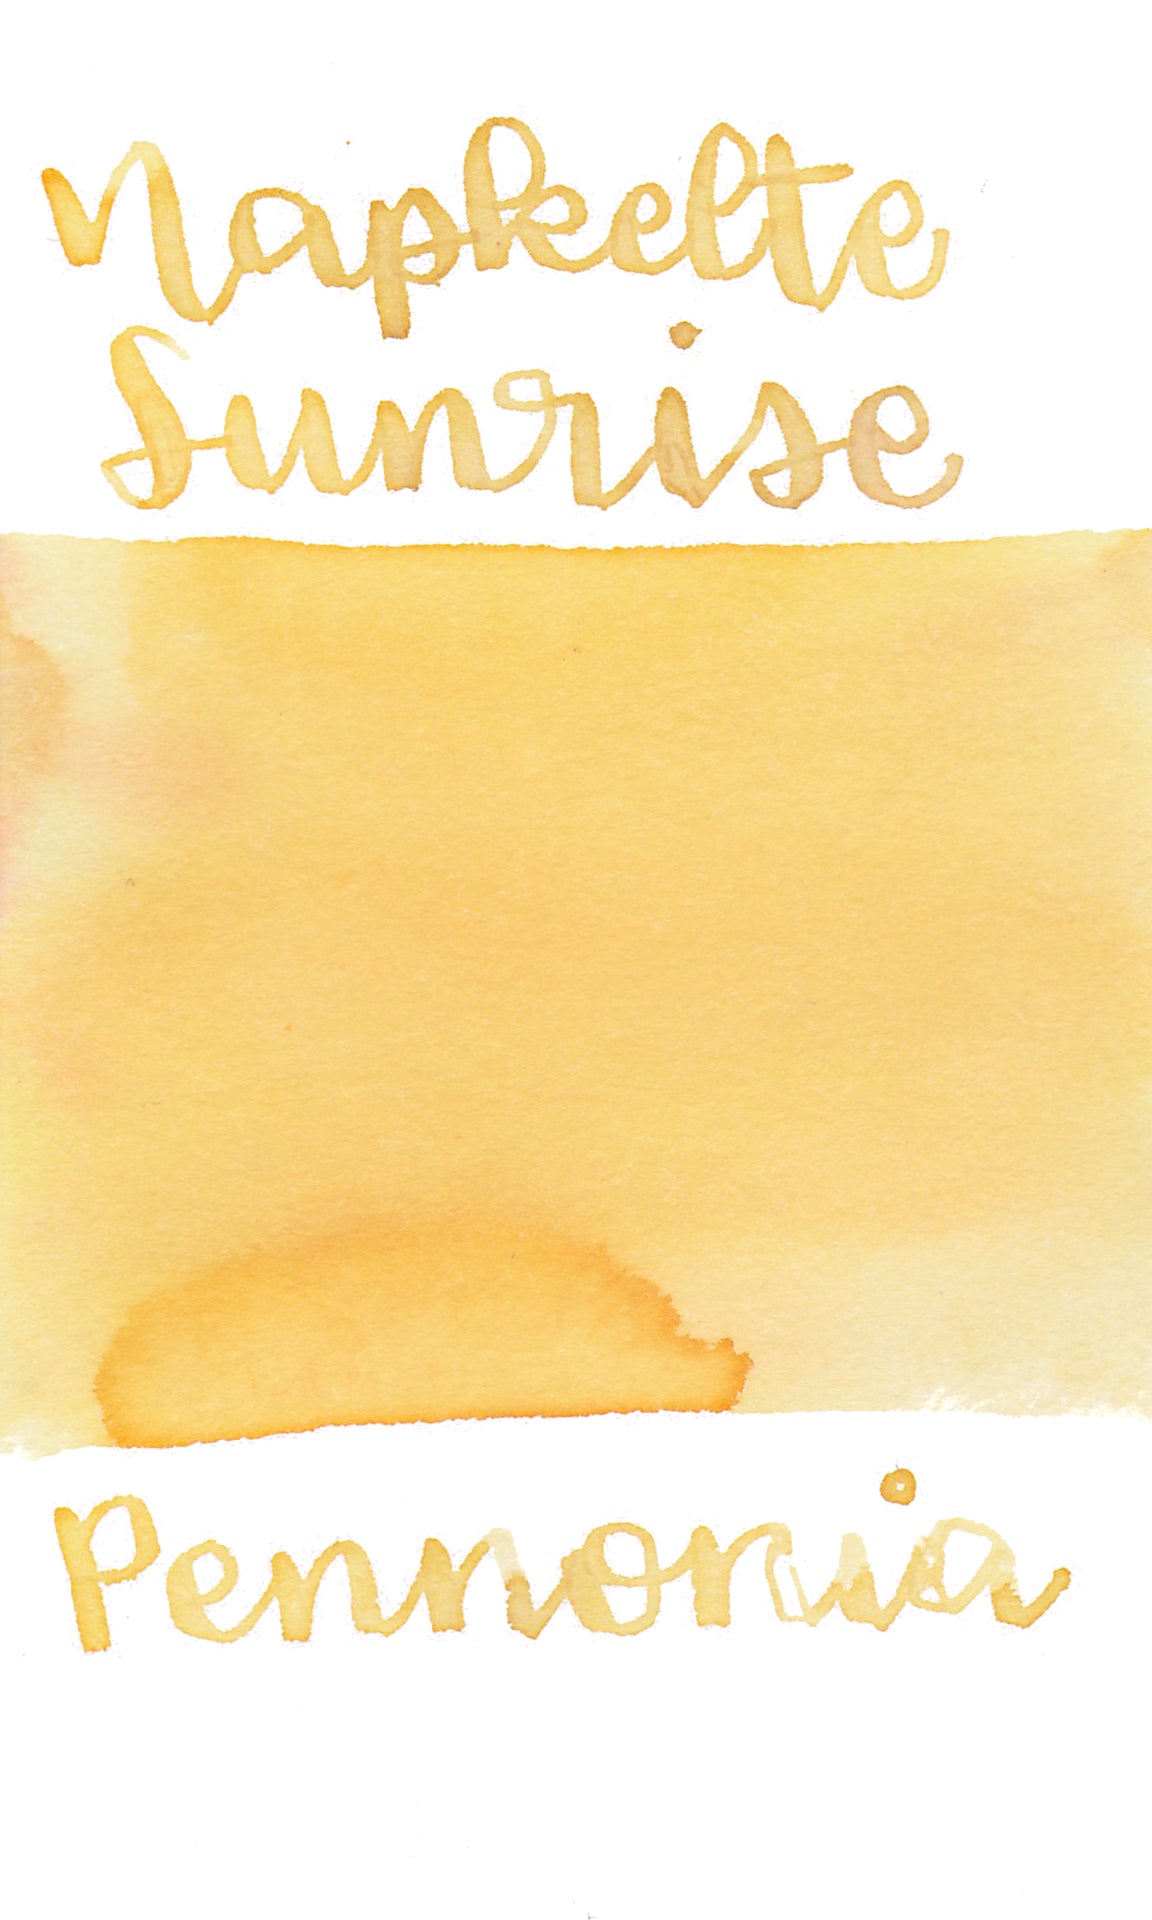 Napkelte
Sunrise
Pennonia